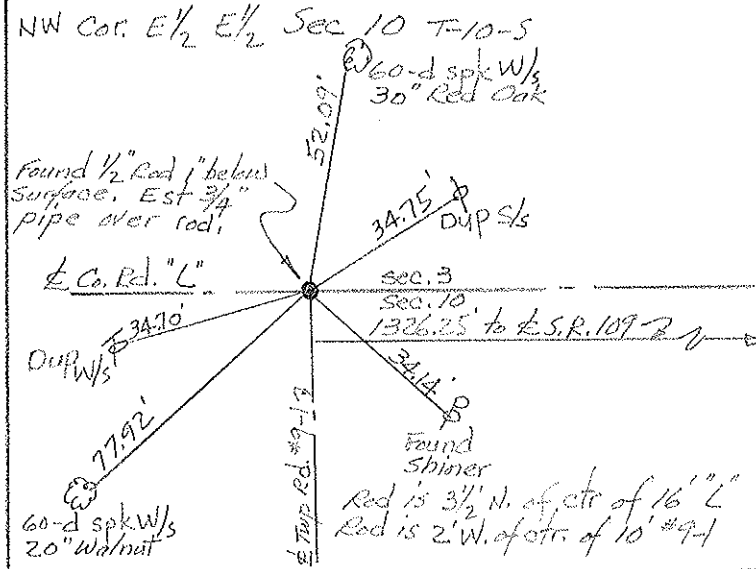 NW Cor. E1/2 E1/2 Sec 10 T-10-S
60-d spk W/s
30" Red Oak
52.09'
Found 1/2" Rod 1" below
Surface. Est 3/4"
pipe over rod.
34.75'
Dup S/s
℄ Co. Rd. "L"
sec. 3
sec. 10
1326.25' to ℄ S.R. 109
34.70'
Dup W/s
34.14'
77.92'
Found
Shiner
60-d spk W/s
20" Walnut
℄ Twp Rd. #9-1
Rod is 3 1/2' N. of ctr of 16' "L"
Rod is 2' W. of ctr. of 10' #9-1